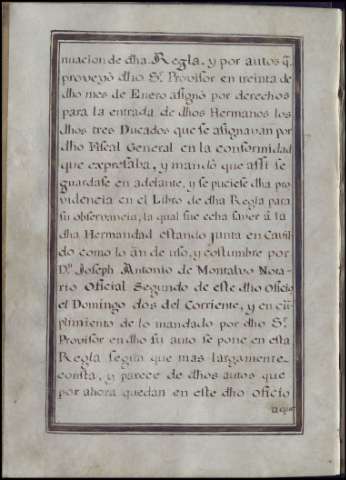 nuacion de dha Regla, y por autos q̃
proveyò dho Sr. Provisor en treinta de
dho mes de Enero asignò por derechos
para la entrada de dhos Hermanos los
dhos tres Ducados que se asignavan por
dho Fiscal General en la conformidad
que expresaba, y mandò que assi se
guardase en adelante, y se pusiese dha pro
videncia en el Libro de dha Regla para
su observancia, la qual fue echa saver à la
dha Hermandad estando junta en Cavil
do como lo àn de uso, y costumbre por
Dn. Joseph Antonio de Montalvo Nota-
rio Oficial Segundo de este dho Oficio
el Domingo dos del Corriente, y en cũ
plimiento de lo mandado por dho Sr.
Provisor en dho su auto se pone en esta
Regla segun que mas largamente
consta, y parece de dhos autos que
por ahora quedan en este dho oficio